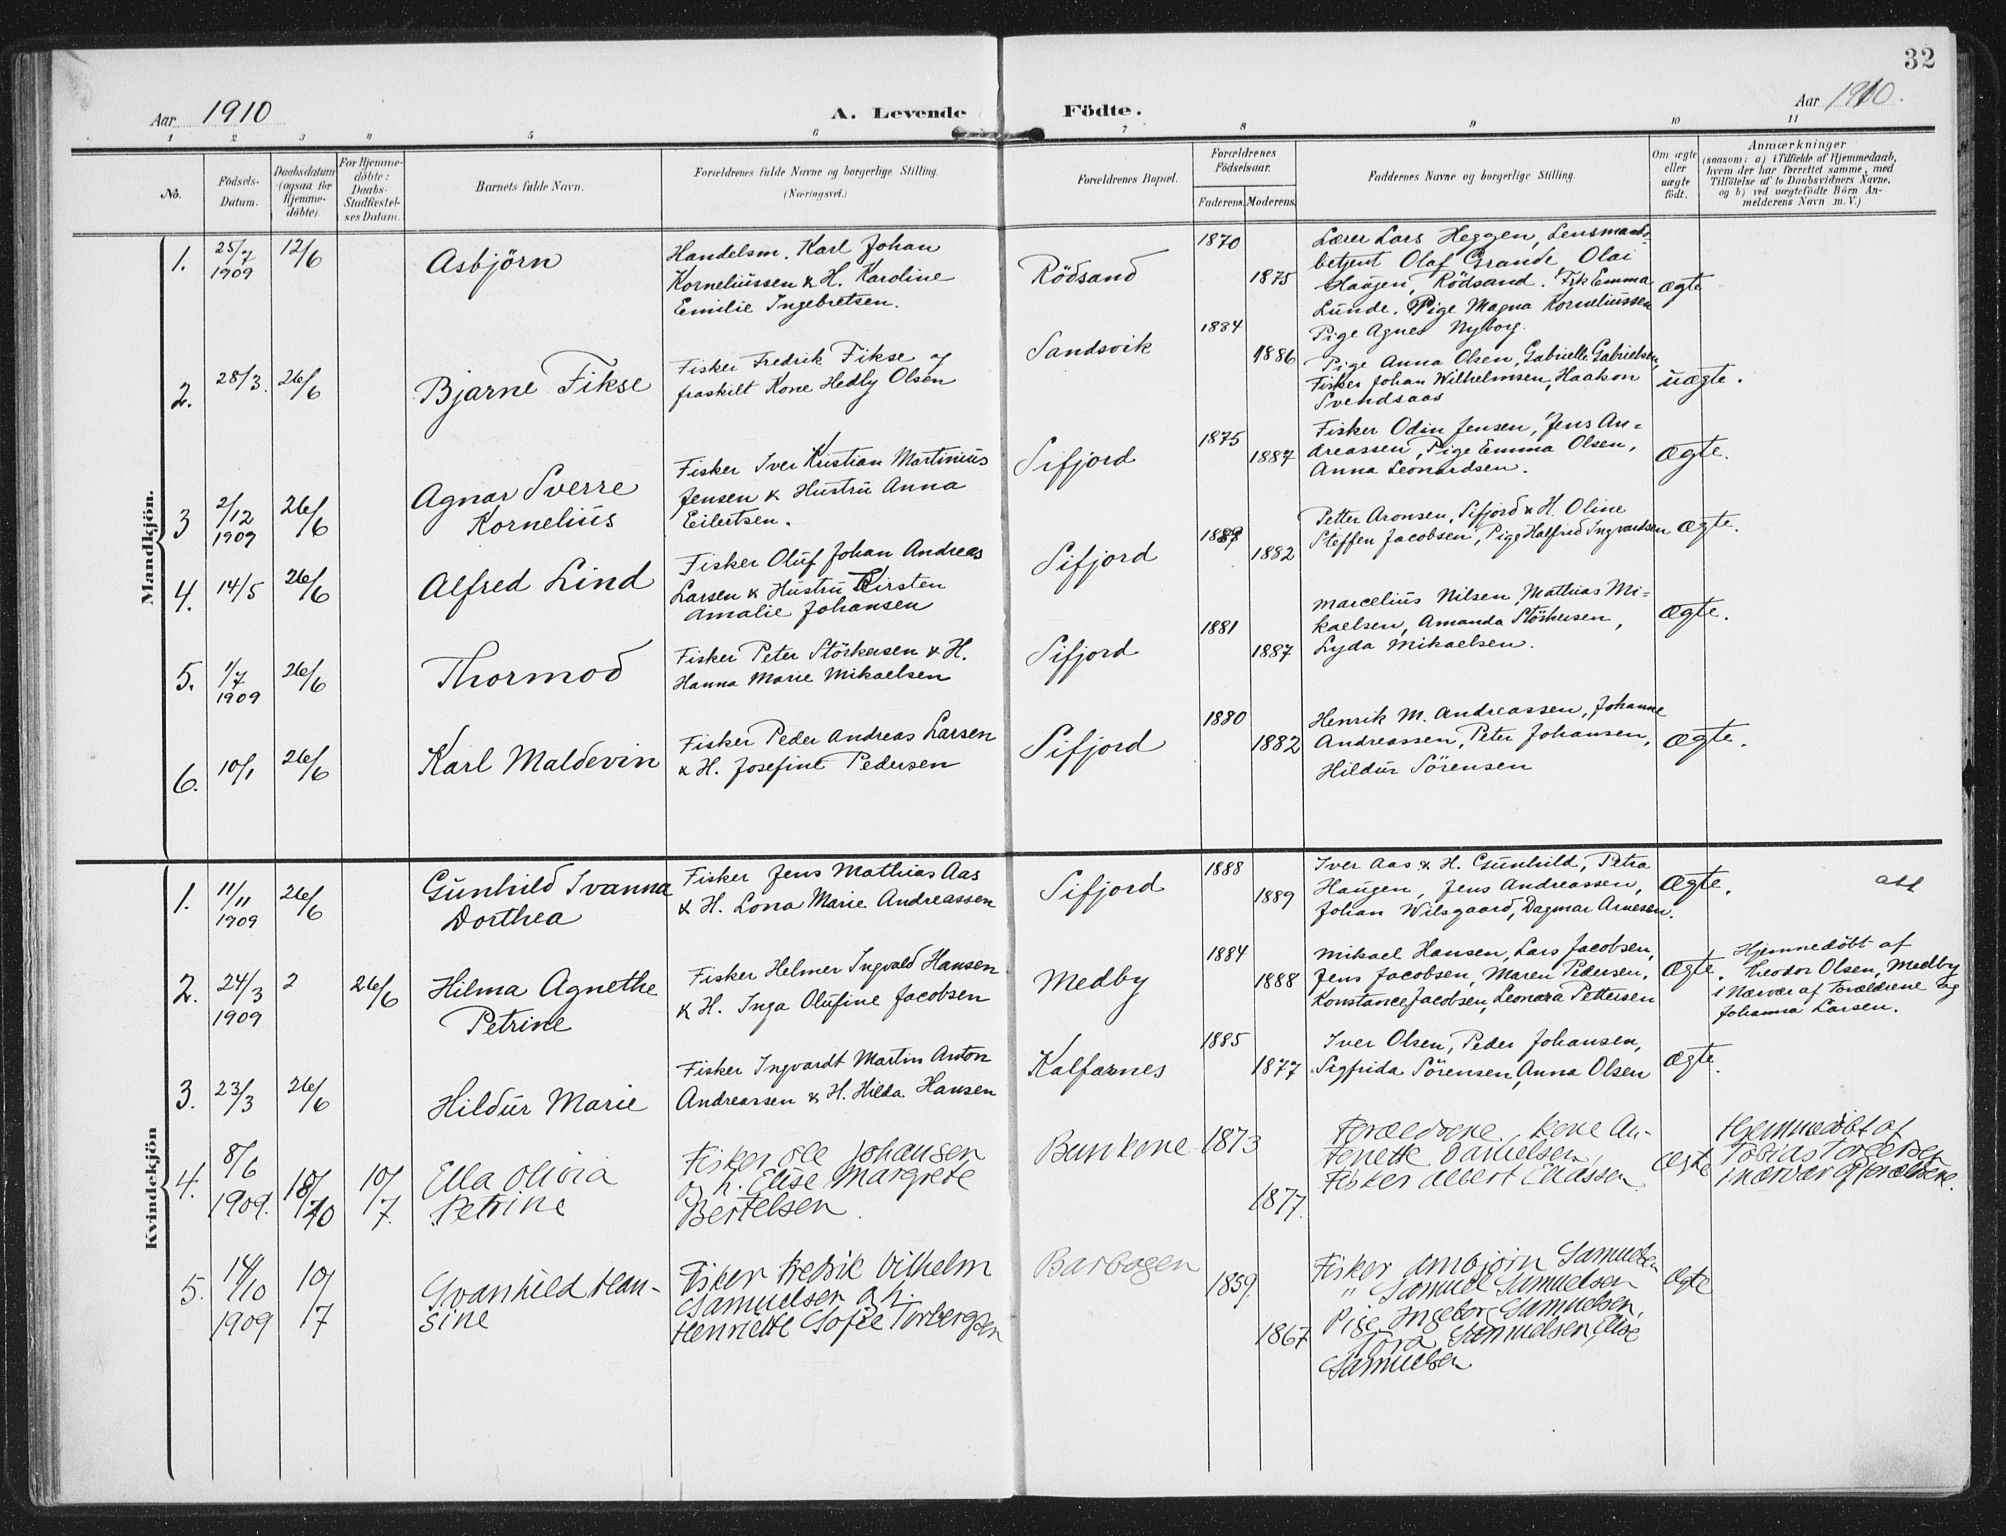 32
Aar 1910
A. Levende Födte.
Aar 1910.
1 2 3 4 5 6 7 8 9 10 11
No.
Födsels-
Datum.
Daabsdatum
(ogsaa for
Hjemme-
döbte).
For Hjemme-
döbte:
Daabs-
Stadfæstel-
ses Datum.
Barnets fulde Navn.
Forældrenes fulde Navne og borgerlige Stilling.
(Næringsvei.)
Forældrenes Bopæl.
Forældrenes
Födselsaar.
Faderens. Moderens.
Faddernes Navne og borgerlige Stilling.
Om ægte
eller
uægte
födt.
Anmærkninger
(saasom: a) i Tilfælde af Hjemmedaab,
hvem der har forrettet samme, med
Tilföielse af to Daabsvidners Navne.
og b) ved uægtefödte Börn An-
melderens Navn m. V.)
Mandkjön.
1. 25/7 1909 12/6
Asbjørn
Handelsm. Karl Johan
Korneliussen & H. Karoline
Emilie Ingebretsen.
Rödsand
1870
1875
Lærer Lars Heggen, Lensmands-
betjent Olaf Grande Olai
Haugen, Rödsand. Frk Emma
Lunde. Pige Magna Korneliussen
Pige Agnes Nyborg.
ægte
2. 28/3. 26/6
Bjarne Fikse
Fisker Fredrik Fikse og
fraskilt Kone Hedly Olsen
Sandsvik
1884
1886
Pige Anna Olsen, Gabrielle Gabrielsen,
Fisker Johan Wilhelmsen, Haakon
Svendsaas
uægte.
3 2/12 1909 26/6
Agnar Sverre
Kornelius
Fisker Iver Kristian Martinius
Jensen & Hustru Anna
Eilertsen.
Sifjord
1875
1887
Fisker Odin Jensen, Jens An=
dreassen, Pige Emma Olsen,
Anna Leonardsen.
Ægte.
4. 14/5 26/6
Alfred Lind
Fisker Oluf Johan Andreas
Larsen & Hustru Kirsten
Amalie Johansen
Sifjord
1882
Petter Aronsen, Sifjord & H. Oline
Steffen Jacobsen, Pige Halfrid Ingvardsen
Ægte.
5. 1/7 1909 26/6
Thormod
Fisker Peter Störkersen & H.
Hanna Marie Mikaelsen
Sifjord
1881
1887
Marcelius Nilsen, Mathias Mi=
kaelsen, Amanda Störkersen,
Lyda Mikaelsen.
Ægte.
6. 10/1 26/6
Karl Maldevin
Fisker Peder Andreas Larsen
& H. Josefine Pedersen
Sifjord
1880
1882
Henrik M. Andreassen, Johanne
Andreassen, Peter Johansen,
Hildur Sörensen
Ægte.
Kvindekjön
1. 11/11 1909 26/6
Gunhild Ivanna
Dorthea
Fisker Jens Mathias Aas
& H. Lona Marie Andreassen
Sifjord
1888
1889
Iver Aas & H. Gunhild, Petra
Haugen, Jens Andreassen,
Johan Wilsgaard, Dagmar Arnesen.
Ægte.
att
2. 24/3 1909 2 26/6
Hilma Agnethe
Petrine
Fisker Helmer Ingvald Hansen
& H. Inga Olufine Jacobsen
Medby
1884
1888
Mikael Hansen, Lars Jacobsen,
Jens Jacobsen, Maren Pedersen,
Konstance Jacobsen, Leonara Pettersen
Ægte.
Hjemmedöbt af
Theodor Olsen, Medby
i Nærvær af Forældrene og
Johanna Larsen.
3. 23/3 26/6
Hildur Marie
Fisker Ingvardt Martin Anton
Andreassen & H. Hilda Hansen
Kalfarnes
1885
1877
Iver Olsen, Peder Johansen,
Sigfrida Sörensen, Anna Olsen
Ægte.
4. 8/6 1909. 10/7.
Ella Olivia
Petrine
Fisker Ole Johansen
og h. Elise Margrete
Bertelsen
Bunkene
1873
1877.
Forældrene, Kone An-
Fenette Danielsen,
Fisker Albert Eliassen
Ægte
Hjemmedöbt af
Tobias Torbersen
i nærvær af forældrene.
5. 14/10 1909 10/7
Svanhild Han-
sine
Fisker Fredrik Vilhelm
Samuelsen o h.
Henriette Sofie Torbergsen
Barbogen
1859.
1867
Fisker Arnbjørn Samuelsen
" Samuel Samuelsen
Pige Ingeborg Samuelsen,
Tora Samuelsen, Elise
Samuelsen
Ægte